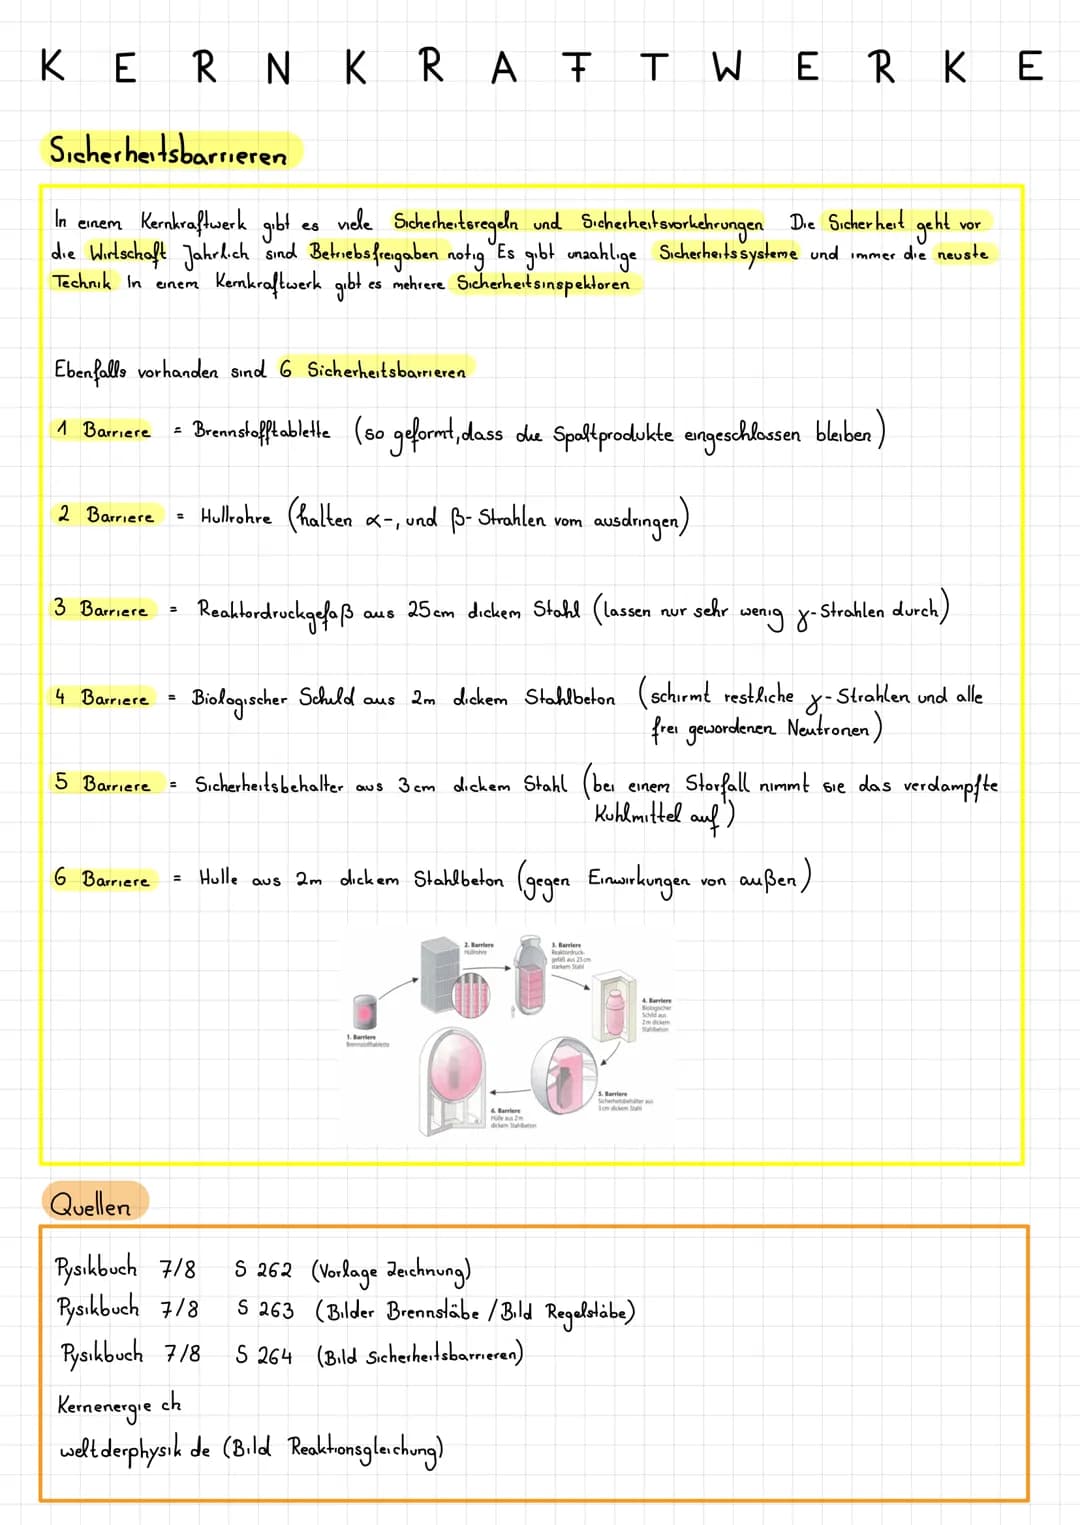 KERNKRAFTWERKE
Sicherheitsbarrieren
In einem Kernkraftwerk gibt es viele Sicherheitsregeln und Sicherheitsvorkehrungen Die Sicherheit geht vor
die Wirtschaft Jahrlich sind Betriebsfreigaben notig Es gibt unzahlige Sicherheitssysteme und immer die neuste
Technik In einem Kernkraftwerk gibt es mehrere Sicherheitsinspektoren
Ebenfalls vorhanden sind 6 Sicherheitsbarrieren
1 Barriere = Brennstofftablette (so geformt, dass die Spaltprodukte eingeschlossen bleiben)
2 Barriere = Hullrohre (halten α-, und β- Strahlen vom ausdringen)
3 Barriere = Reaktordruckgefaß aus 25cm dickem Stahl (lassen nur sehr wenig γ-Strahlen durch)
4 Barriere = Biologischer Schild aus 2m dickem Stahlbeton (schirmt restliche γ-Strahlen und alle
frei gewordenen Neutronen)
5 Barriere = Sicherheitsbehalter aus 3cm dickem Stahl (bei einem Storfall nimmt sie das verdampfte
Kuhlmittel auf)
6 Barriere = Hulle aus 2m dickem Stahlbeton (gegen Einwirkungen von außen)
1. Barriere
Brennstofftablette
2. Barriere
Hüllrohre
3. Barriere
Reaktordruck-
gefäß aus 25 cm
starkem Stahl
4. Barriere
Biologischer
Schild aus
2m dickem
Stahlbeton
5. Barriere
Sicherheitsbehälter aus
3cm dickem Stahl
6. Barriere
Hülle aus 2m
dickem Stahlbeton
Quellen
Pysikbuch 7/8 S 262 (Vorlage Zeichnung)
Pysikbuch 7/8 S 263 (Bilder Brennstäbe / Bild Regelstäbe)
Pysikbuch 7/8 S 264 (Bild Sicherheitsbarrieren)
Kernenergie ch
weltderphysik de (Bild Reaktionsgleichung)